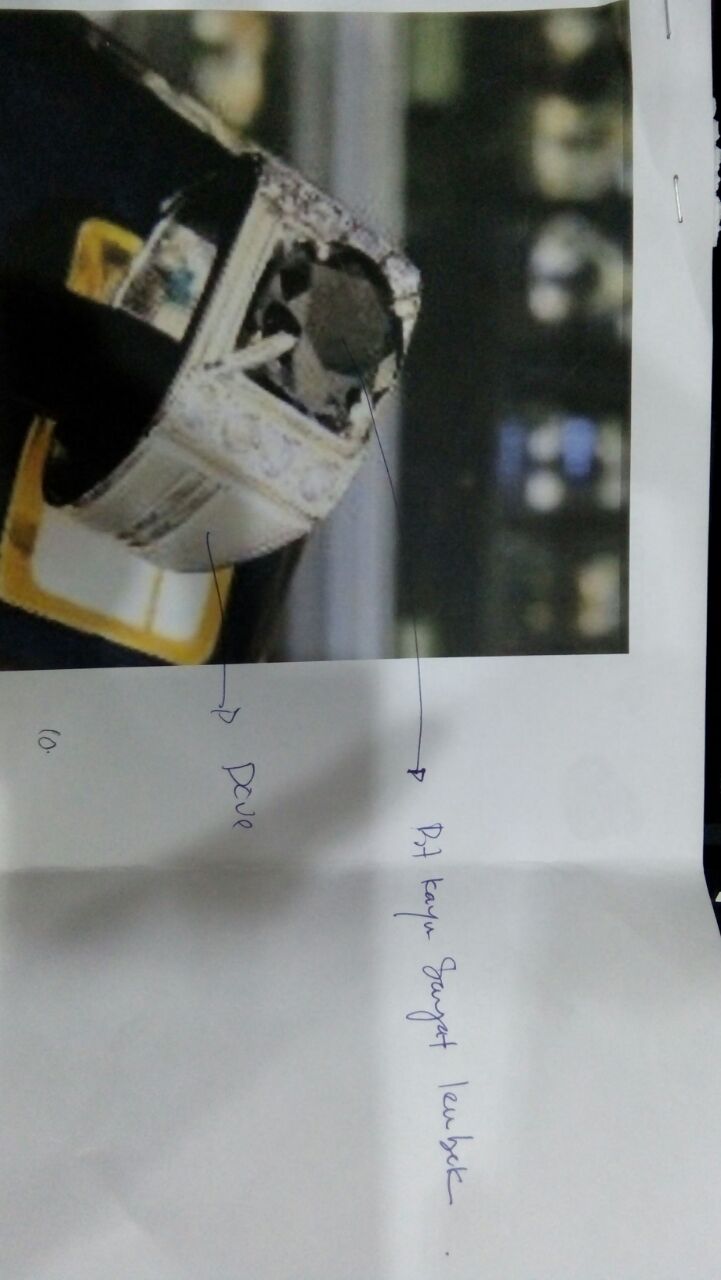 Bt kayu Sangat lembek.
Dove
10.